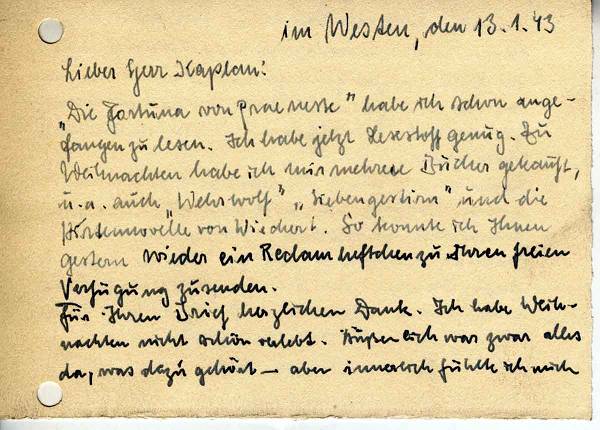 im Westen, den 13.1.43
Lieber Herr Kaplan!
„Die Fortuna von Praeneste" habe ich schon ange-
fangen zu lesen. Ich habe jetzt Lesestoff genug. Zu
Weihnachten habe ich mir mehrere Bücher gekauft,
u. a. auch „Wehrwolf", „Siebengestirn" und die
Hirtennovelle von Wiechert. So konnte ich Ihnen
gestern wieder ein Reclamheftchen zu Ihren freien
Verfügung zusenden.
Für Ihren Brief herzlichen Dank. Ich habe Weih-
nachten nicht schön verlebt. Äußerlich war zwar alles
da, was dazu gehört – aber innerlich fühlte ich mich